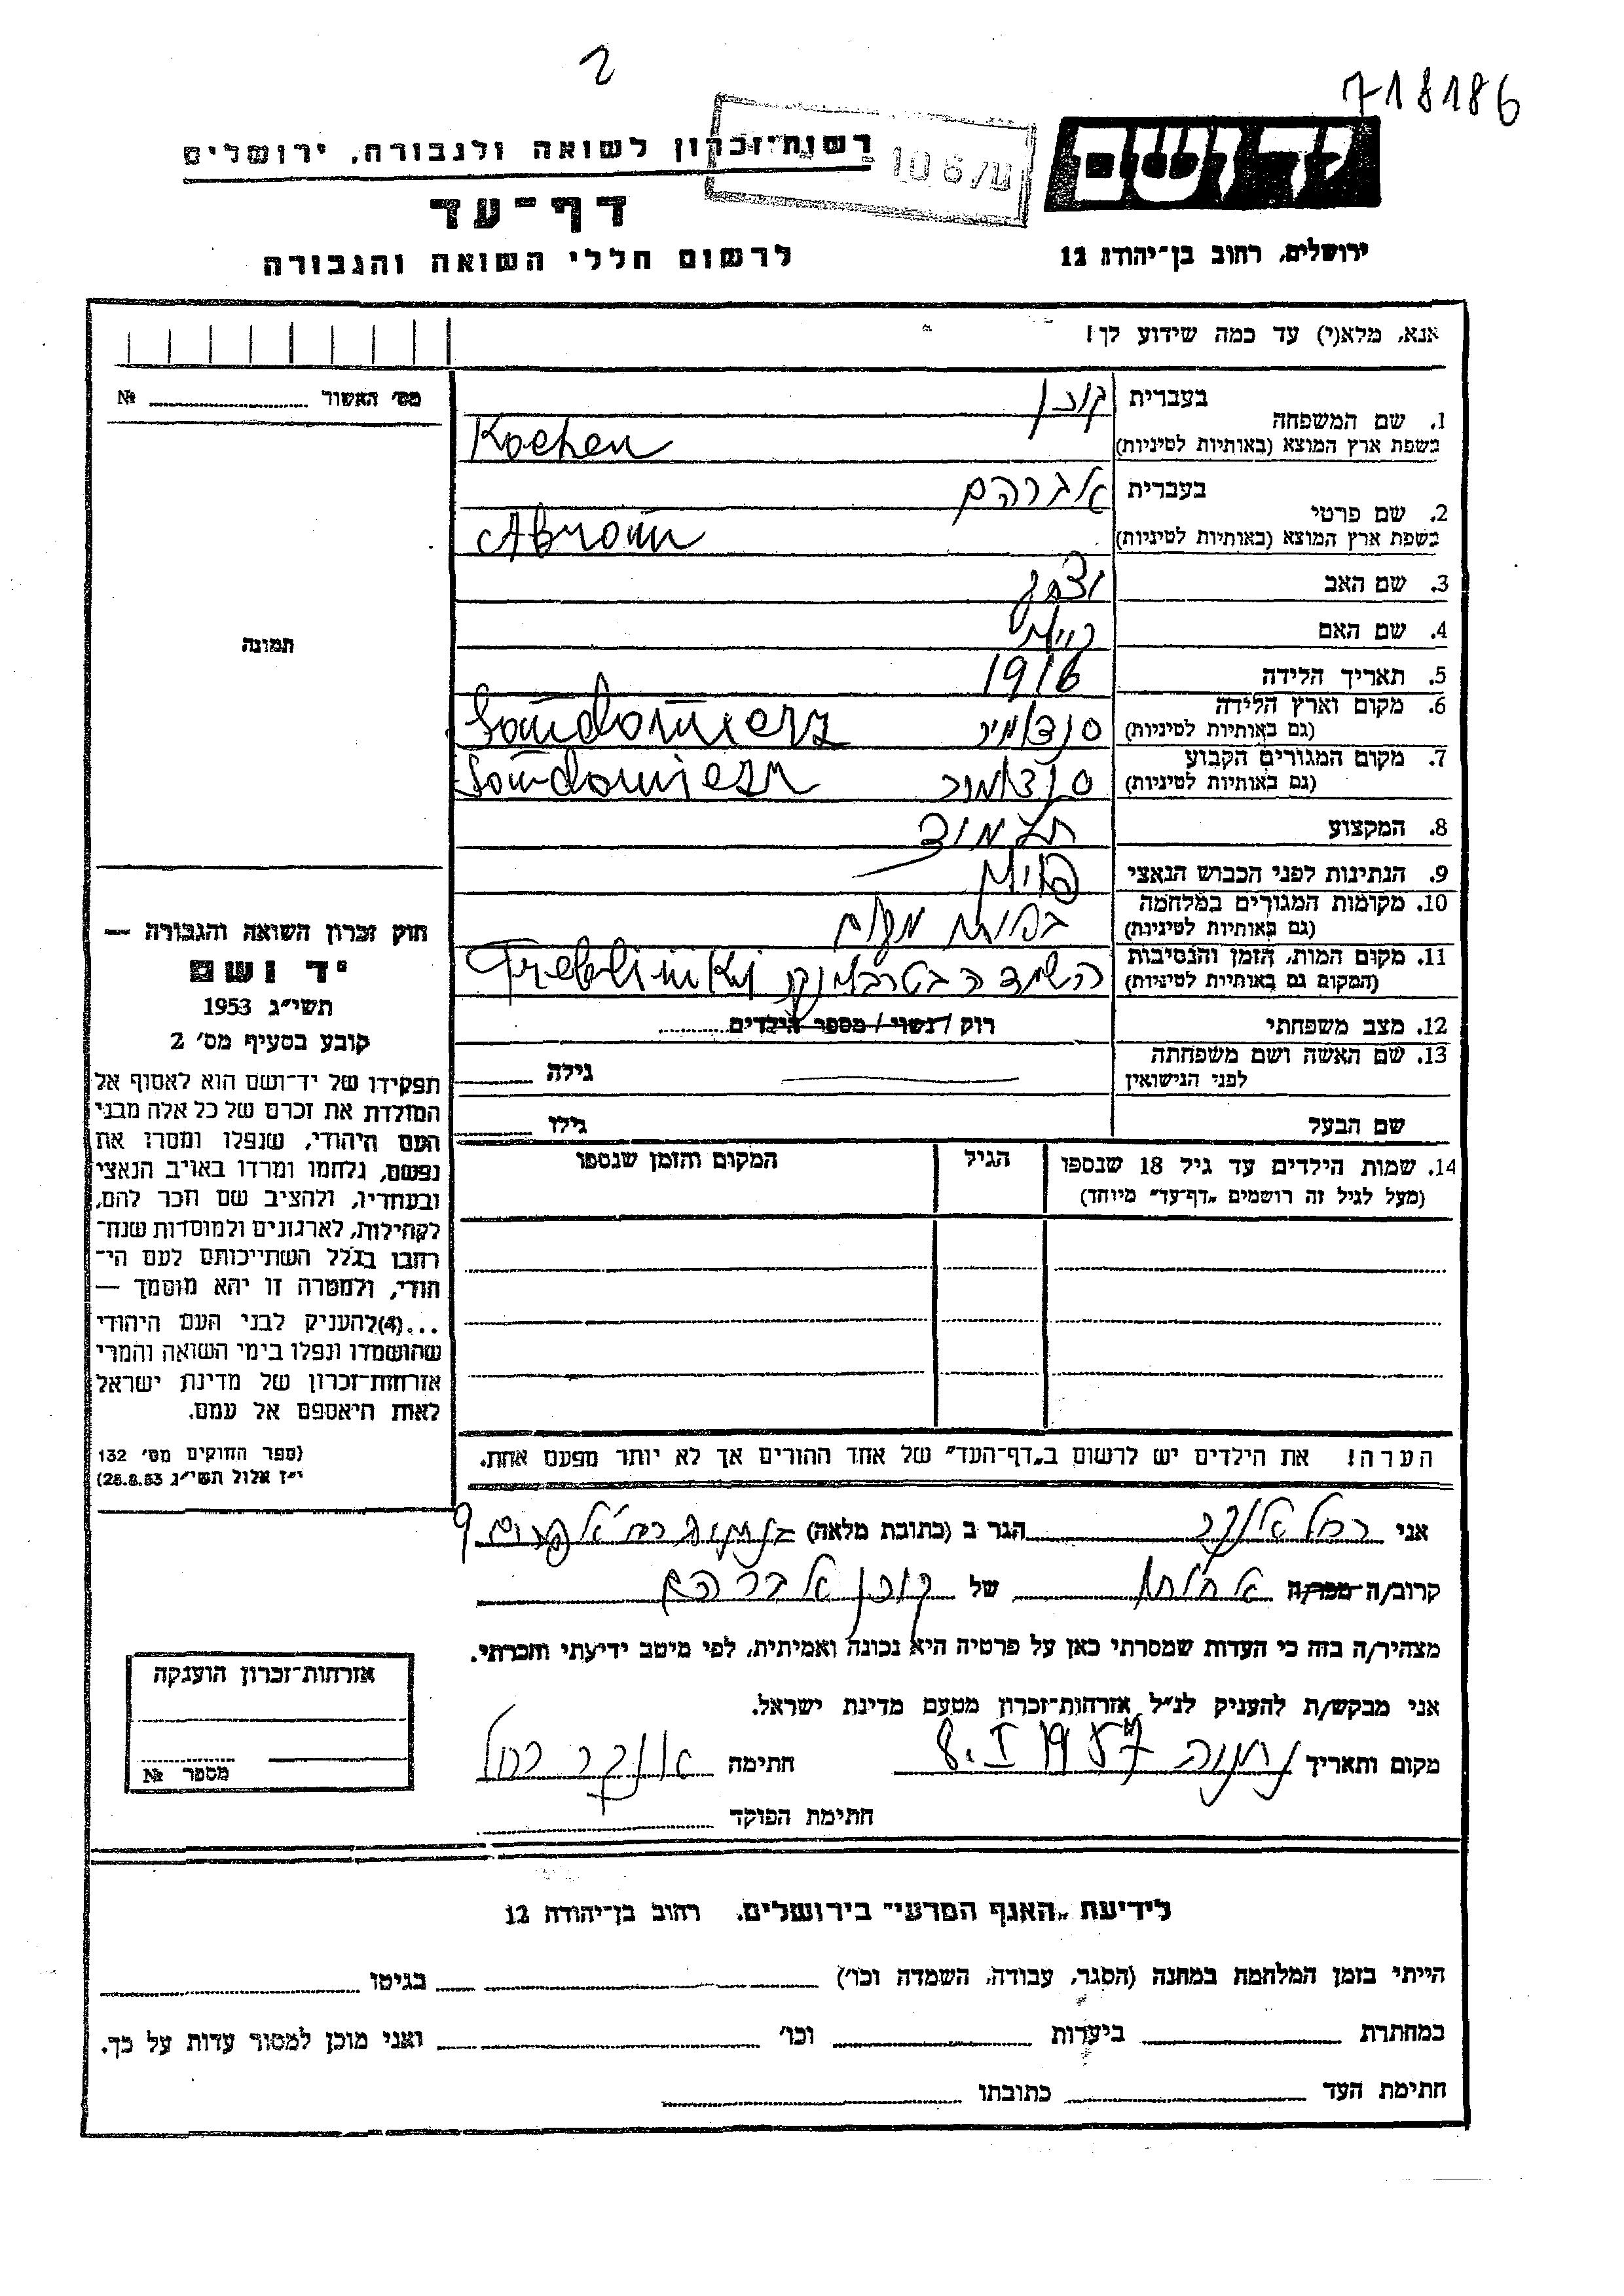 2
718186
יד ושם
ע/106
רשות־זכרון לשואה ולגבורה, ירושלים
דף־עד
לרשום חללי השואה והגבורה
ירושלים, רחוב בן־יהודה 12
אנא, מלא(י) עד כמה שידוע לך!
מס' האשור № 
1. שם המשפחה בעברית קוכן
בשפת ארץ המוצא (באותיות לטיניות) Kochen
2. שם פרטי בעברית אברהם
בשפת ארץ המוצא (באותיות לטיניות) Abram
3. שם האב
4. שם האם
5. תאריך הלידה 1916
6. מקום וארץ הלידה (גם באותיות לטיניות) סנדומיר Sandomierz
7. מקום המגורים הקבוע (גם באותיות לטיניות) סנדומיר Sandomierz
8. המקצוע תלמיד
9. הנתינות לפני הכבוש הנאצי
10. מקומות המגורים במלחמה (גם באותיות לטיניות)
11. מקום המות, הזמן והנסיבות (המקום גם באותיות לטיניות) השמדה בטרבלינקי Treblinki
12. מצב משפחתי רוק / נשוי / מספר הילדים
13. שם האשה ושם משפחתה לפני הנישואין גילה
שם הבעל גילו
14. שמות הילדים עד גיל 18 שנספו הגיל המקום והזמן שנספו
(מעל לגיל זה רושמים „דף־עד" מיוחד)
הערה! את הילדים יש לרשום ב„דף־העד" של אחד ההורים אך לא יותר מפעם אחת.
תמונה
חוק זכרון השואה והגבורה —
יד ושם
תשי"ג 1953
קובע בסעיף מס' 2
תפקידו של יד־ושם הוא לאסוף אל
המולדת את זכרם של כל אלה מבני
העם היהודי, שנפלו ומסרו את
נפשם, נלחמו ומרדו באויב הנאצי
ובעוזריו, ולהציב שם וזכר להם,
לקהילות, לארגונים ולמוסדות שנח־
רבו בגלל השתייכותם לעם הי־
הודי, ולמטרה זו יהא מוסמך —
...(4)להעניק לבני העם היהודי
שהושמדו ונפלו בימי השואה והמרי
אזרחות־זכרון של מדינת ישראל
לאות היאספם אל עמם.
(ספר החוקים מס' 132
י"ז אלול תשי"ג 28.8.53)
אני רחל הגר ב (כתובת מלאה) 9
קרוב/ה מכר/ה אחות של קוכן אברהם
מצהיר/ה בזה כי העדות שמסרתי כאן על פרטיה היא נכונה ואמיתית, לפי מיטב ידיעתי והכרתי.
אני מבקש/ת להעניק לנ"ל אזרחות־זכרון מטעם מדינת ישראל.
מקום ותאריך נתניה 8.I 1957 חתימה רחל
חתימת הפוקד
אזרחות־זכרון הוענקה
מספר №
לידיעת „האגף המדעי" בירושלים, רחוב בן־יהודה 12
הייתי בזמן המלחמה במחנה (הסגר, עבודה, השמדה וכו') בגיטו
במחתרת ביערות וכו' ואני מוכן למסור עדות על כך.
חתימת העד כתובתו